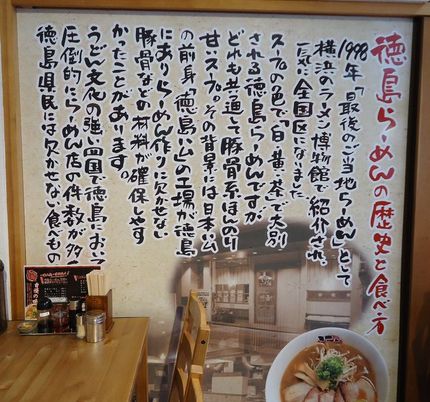 徳島らーめんの歴史と食べ方
1998年「最後のご当地らーめん」として
横浜のラーメン博物館で紹介され、
一気に全国区になりました
スープの色で「白・黄・茶」で大別
される徳島らーめんですが
どれも共通して豚骨系ほんのり
甘いスープ。その背景は日本ハム
の前身「徳島ハム」の工場が徳島
にありらーめん作りに欠かせない
豚骨などの材料が確保しやす
かったことがあります。
うどん文化の強い四国で徳島において
圧倒的にらーめん店の件数が多く
徳島県民には欠かせない食べもの